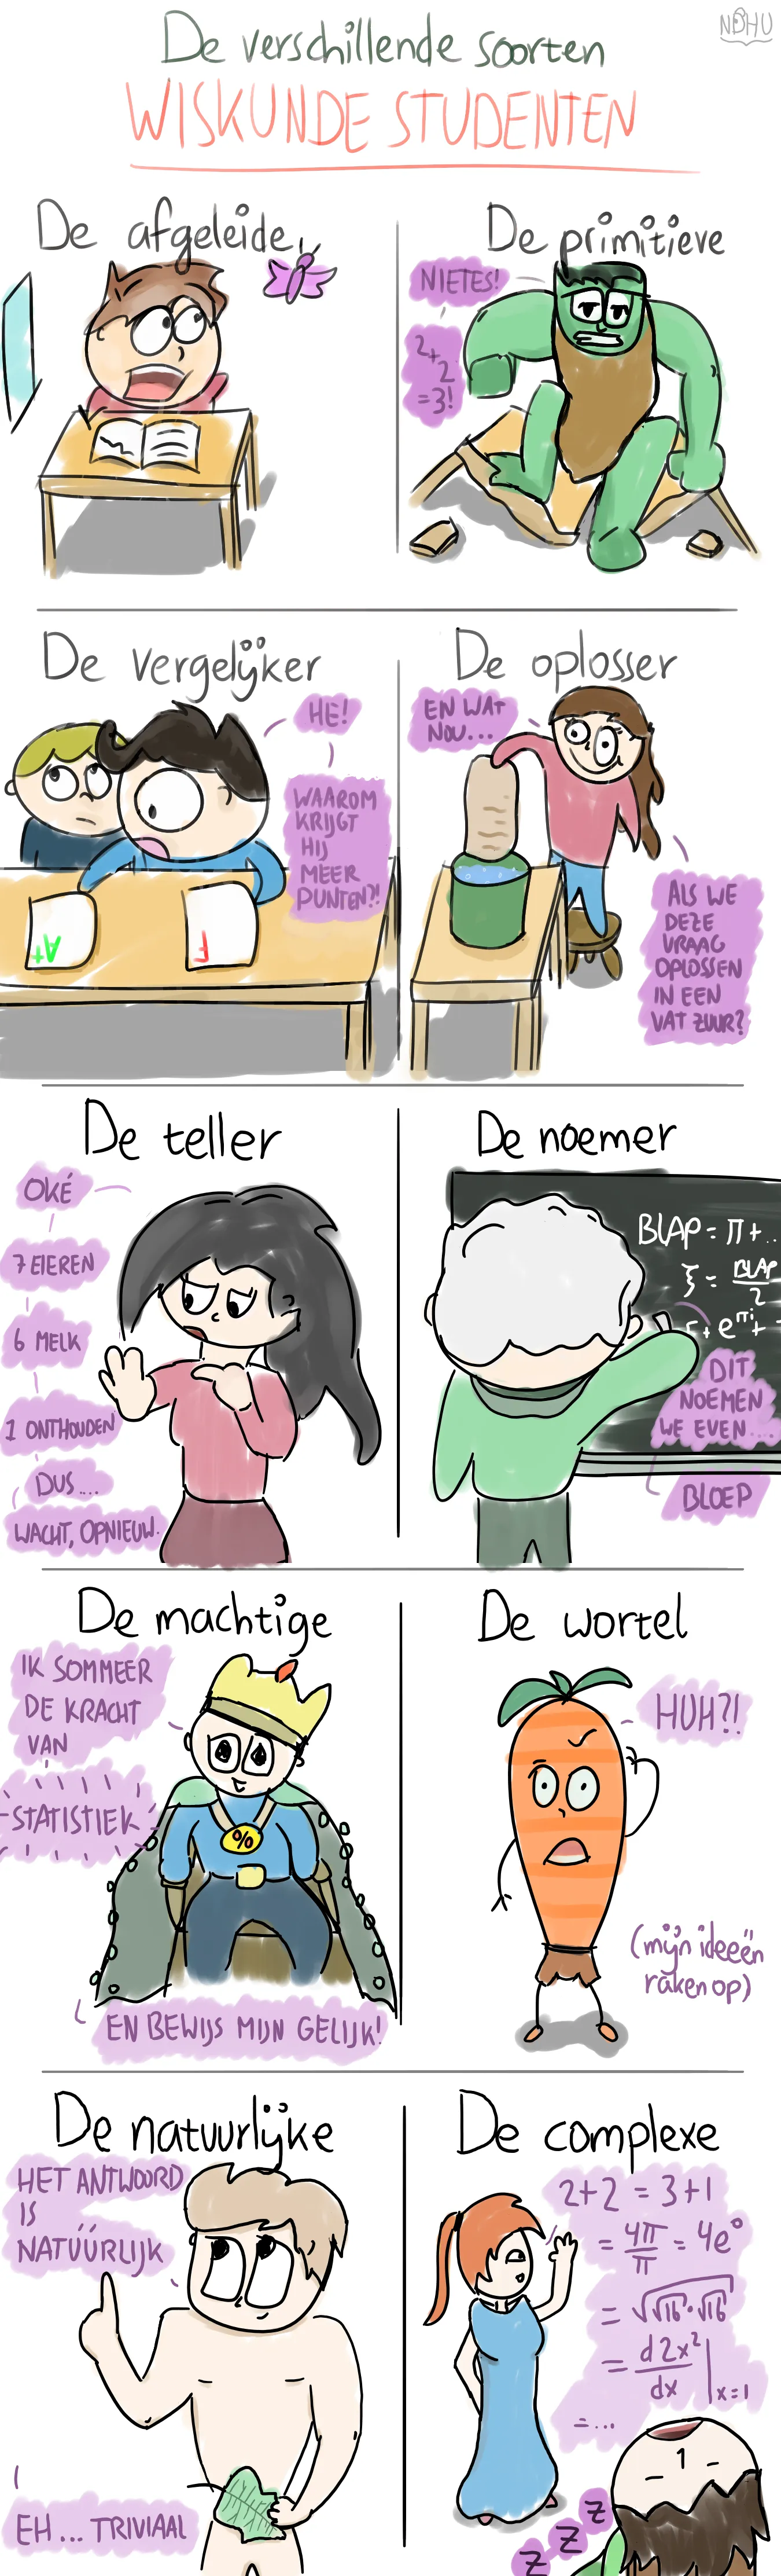 De verschillende soorten
WISKUNDE STUDENTEN
NBHU
De afgeleide
De primitieve
NIETES!
2+
2
=3!
De vergelijker
HE!
WAAROM
KRIJGT
HIJ
MEER
PUNTEN?!
A+
F
De oplosser
EN WAT
NOU...
ALS WE
DEZE
VRAAG
OPLOSSEN
IN EEN
VAT ZUUR?
De teller
OKÉ
7 EIEREN
6 MELK
1 ONTHOUDEN
DUS....
WACHT, OPNIEUW.
De noemer
BLAP = π+..
ξ = BLAP/2
+ e^πi +
DIT
NOEMEN
WE EVEN...
BLOEP
De machtige
IK SOMMEER
DE KRACHT
VAN
STATISTIEK
%
EN BEWIJS MIJN GELIJK!
De wortel
HUH?!
(mijn ideeën
raken op)
De natuurlijke
HET ANTWOORD
IS
NATÚÚRLIJK
EH... TRIVIAAL
De complexe
2+2 = 3+1
= 4π/π = 4e⁰
= √(√16·√16)
= d 2x²/dx |x=1
=...
Z
Z
Z